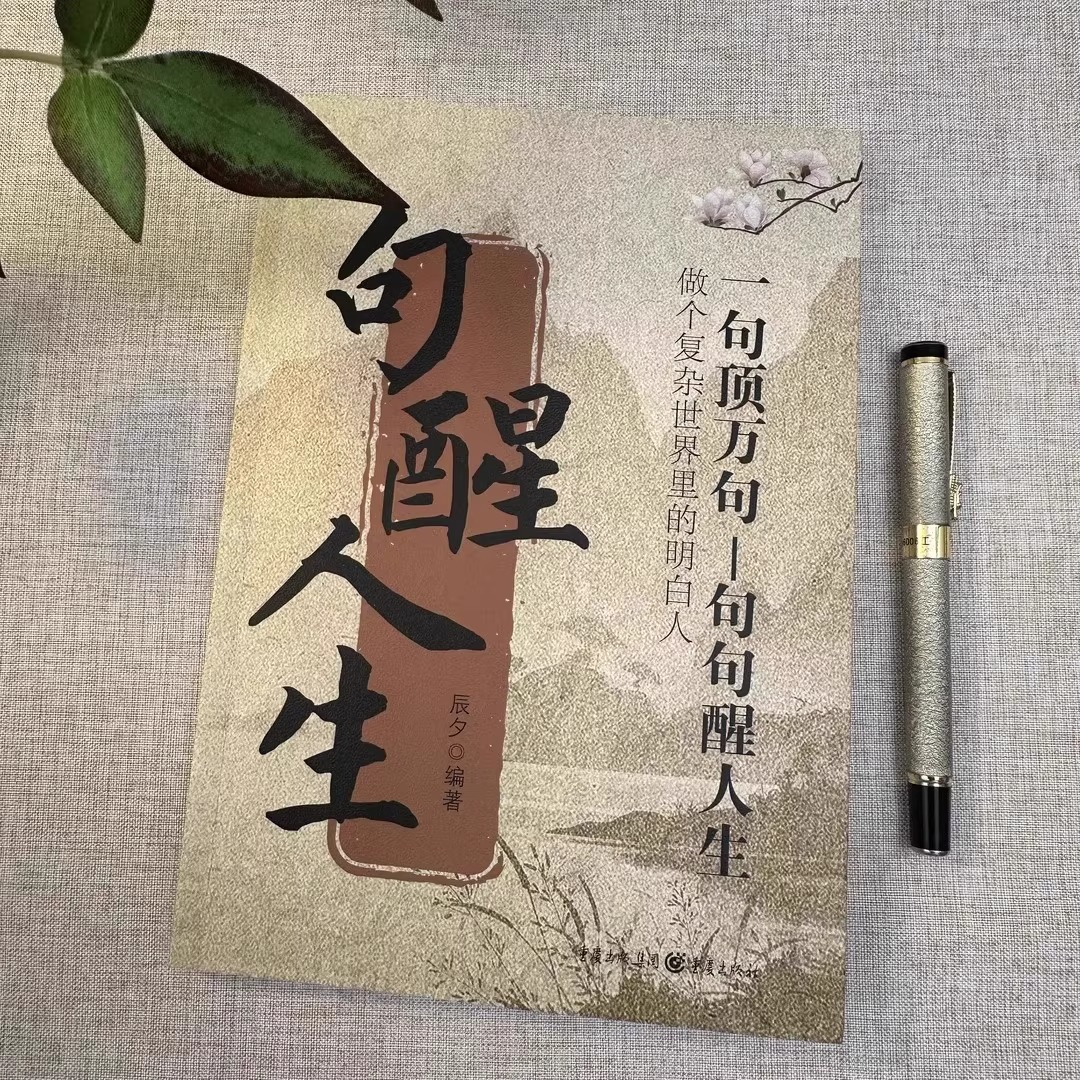 一句顶万句—句句醒人生
做个复杂世界里的明白人
句醒人生
辰夕◎编著
重庆出版集团 重庆出版社